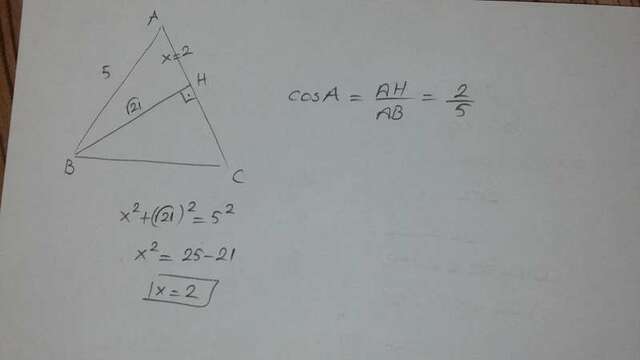 A
x=2
5
H
√21
B
C
cosA = AH/AB = 2/5
x²+(√21)²=5²
x²= 25-21
x=2